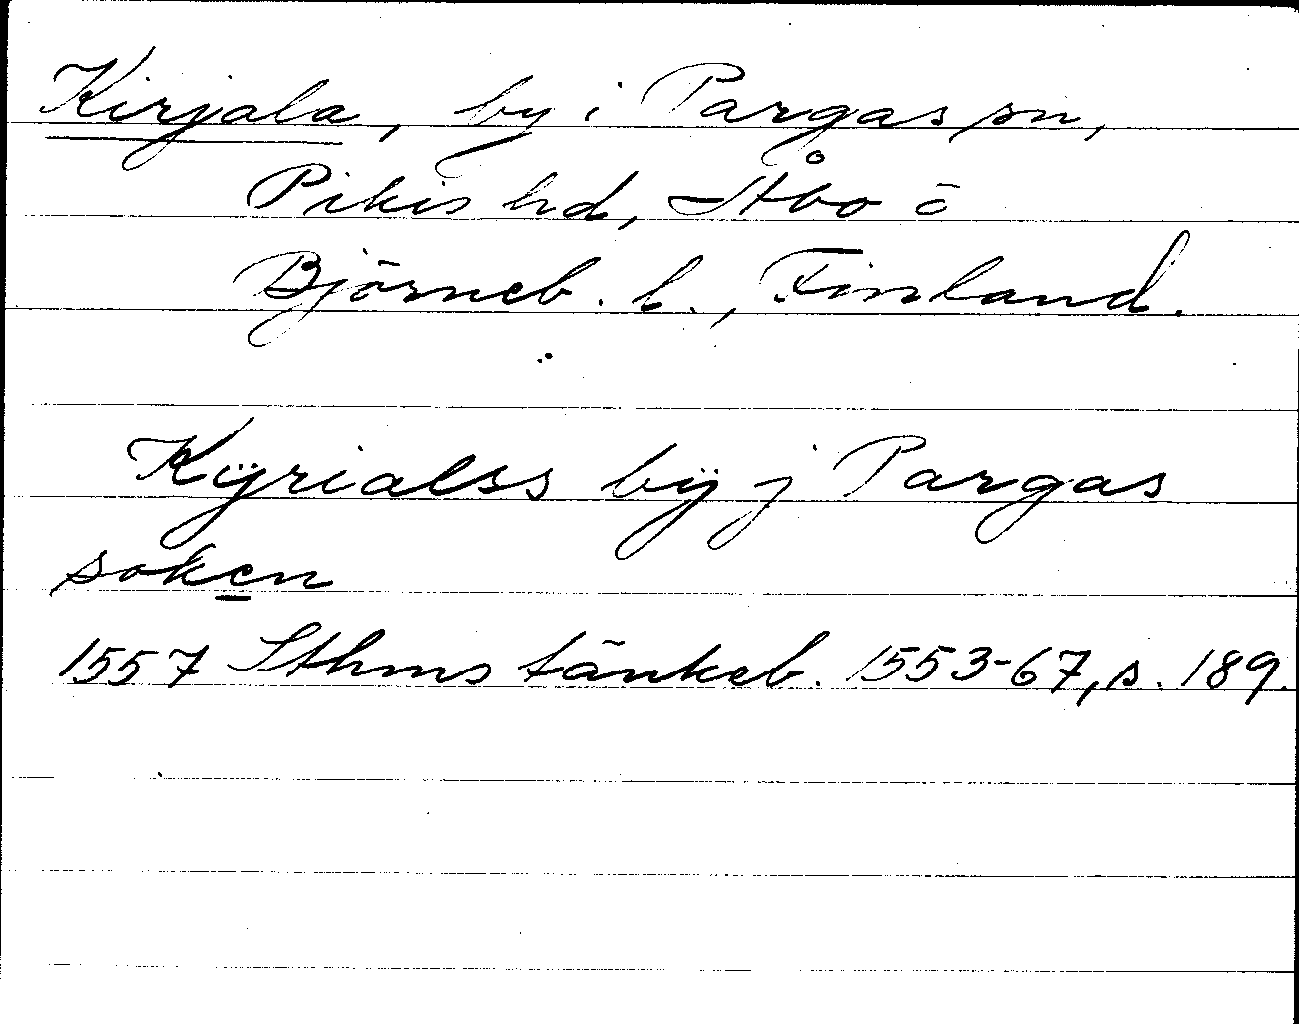 Kirjala, by i Pargas sn,
Pikis hd, Åbo o
Björneb. l., Finland.
Kÿrialss bÿ j Pargas
soken
1557 Sthms tänkeb. 1553-67, s. 189.